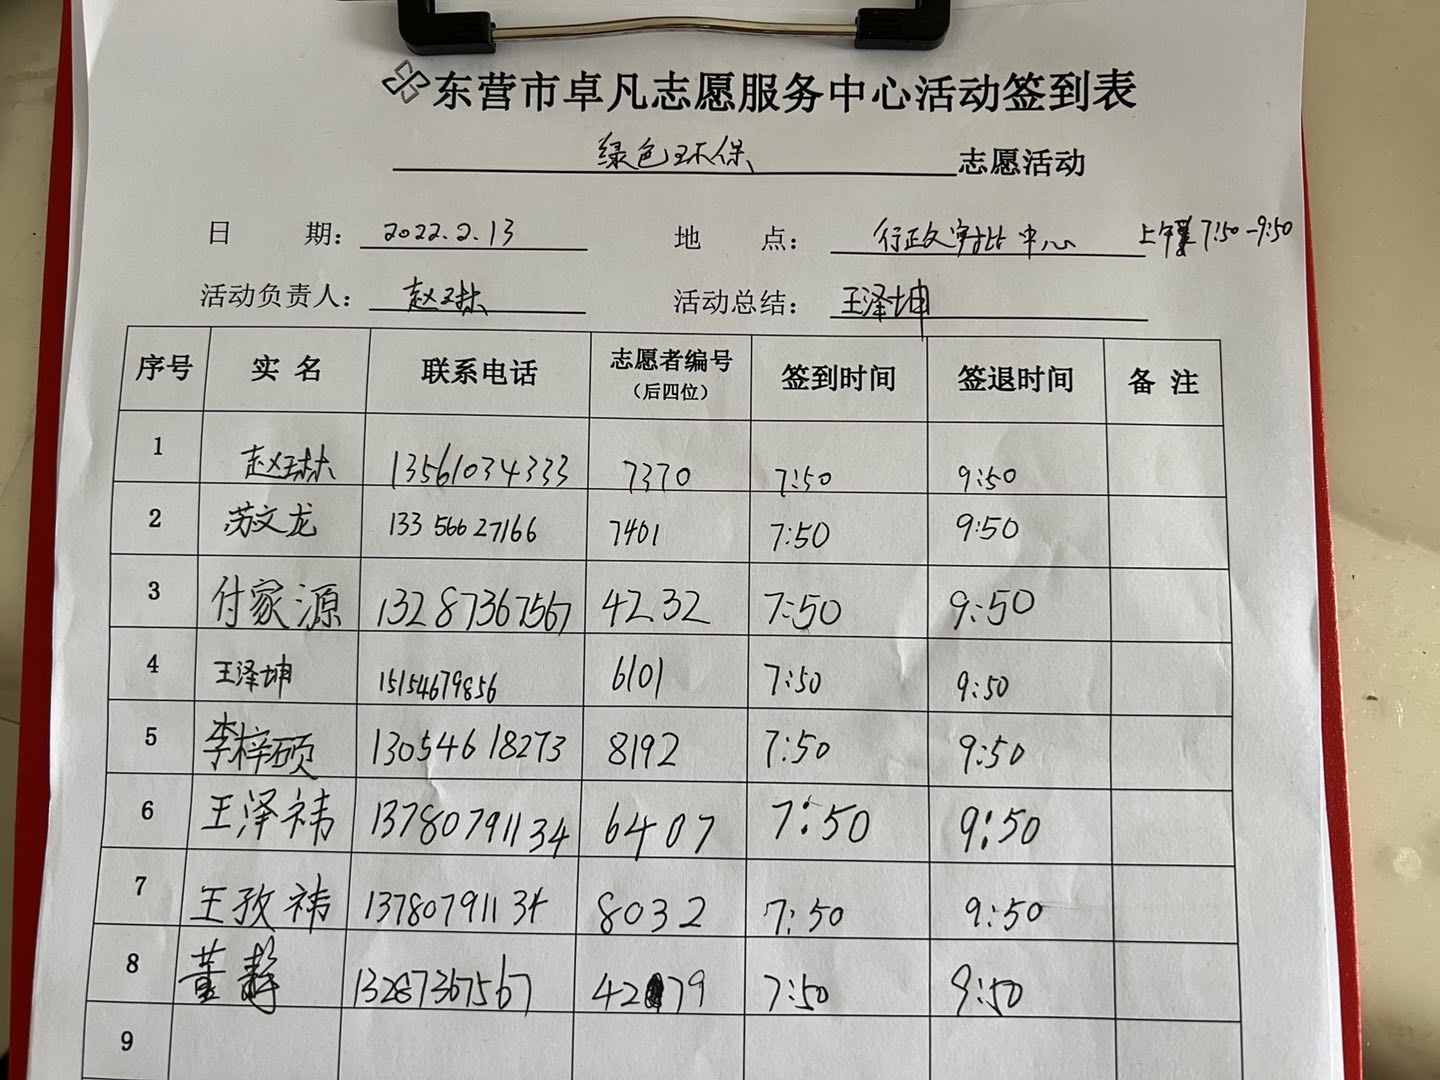 东营市卓凡志愿服务中心活动签到表
绿色环保 志愿活动
日 期: 2022.2.13 地 点: 行政审批中心 上午 7:50-9:50
活动负责人: 赵琳 活动总结: 王泽坤
序号 实 名 联系电话 志愿者编号(后四位) 签到时间 签退时间 备 注
1 赵琳 13561034333 7370 7:50 9:50
2 苏文龙 133 566 27166 7401 7:50 9:50
3 付家源 13287367567 4232 7:50 9:50
4 王泽坤 15154679856 6101 7:50 9:50
5 李梓硕 13054618273 8192 7:50 9:50
6 王泽祎 13780791134 6407 7:50 9:50
7 王孜祎 13780791134 8032 7:50 9:50
8 董静 13287367567 4279 7:50 9:50
9